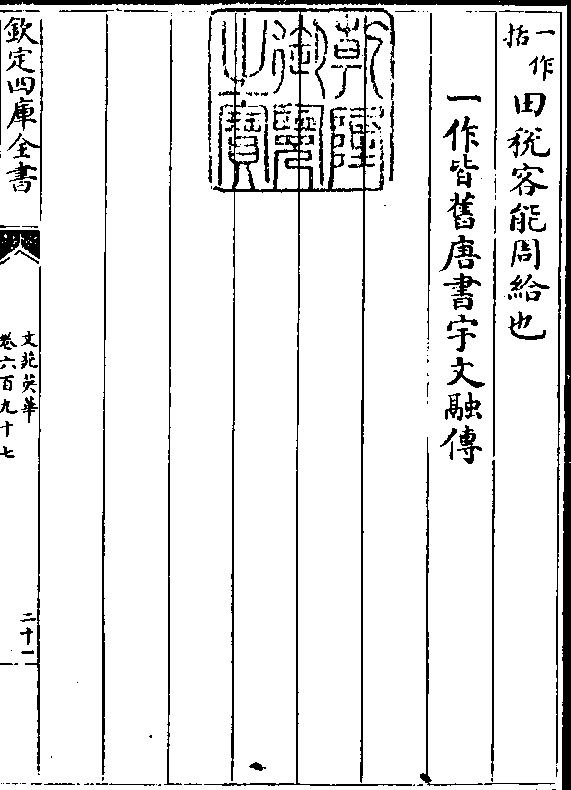 一作括田税客能周給也
一作皆舊唐書宇文融傳
乾隆御覽之寶
欽定四庫全書
文苑英華
卷六百九十七
二十一